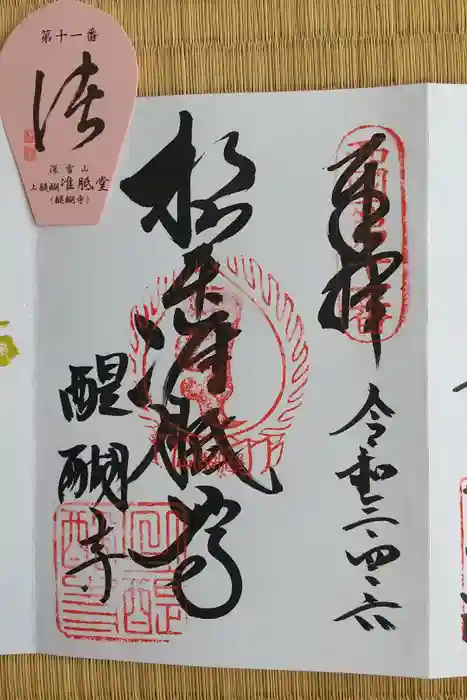 第十一番
深雪山
上醍醐准胝堂
(醍醐寺)
奉拝
令和三・四・六
根本准胝尊
醍醐寺